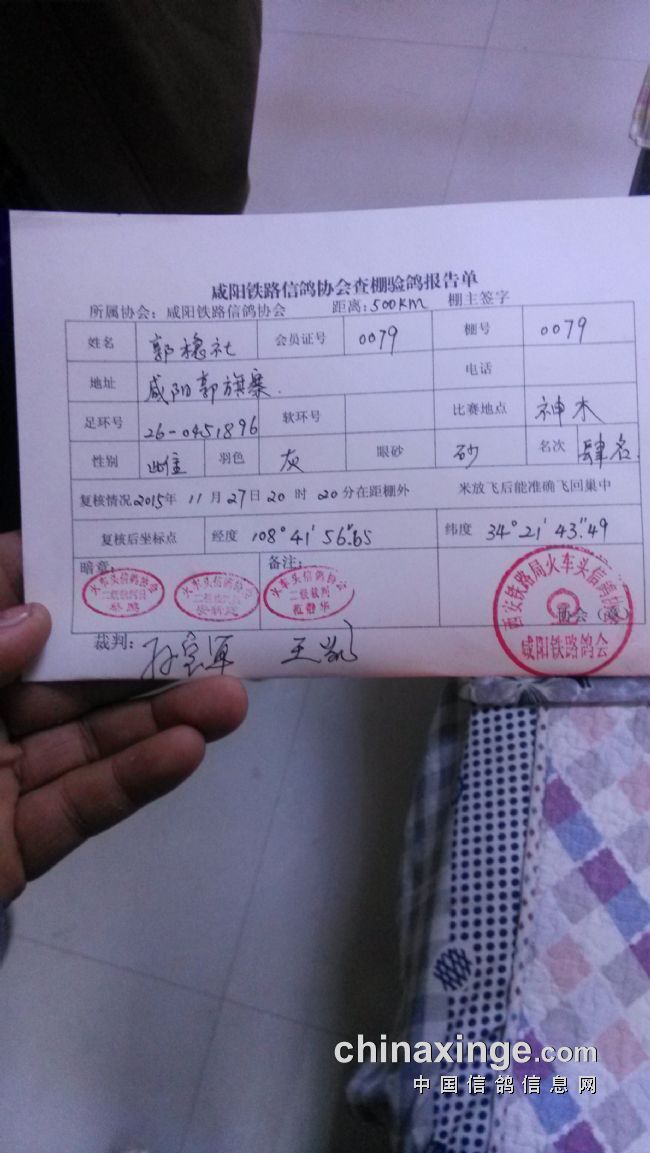 咸阳铁路信鸽协会查棚验鸽报告单
所属协会: 咸阳铁路信鸽协会 距离: 500KM 棚主签字
姓名 郭穗社 会员证号 0079 棚号 0079
地址 咸阳郭旗寨. 电话
足环号 26-0451896 软环号 比赛地点 神木
性别 雌 羽色 灰 眼砂 砂 名次 肆名
复核情况2015年 11 月 27日 20 时 20分在距棚外 米放飞后能准确飞回巢中
复核后坐标点 经度 108°41′56″.65 纬度 34°21′43″.49
暗章: 备注:
火车头信鸽协会 二级裁判员
火车头信鸽协会
火车头信鸽协会 二级裁判
西安铁路局火车头信鸽协会
咸阳铁路鸽会
协会(章)
裁判: 孙宝军 王凯
chinaxinge.com
中国信鸽信息网